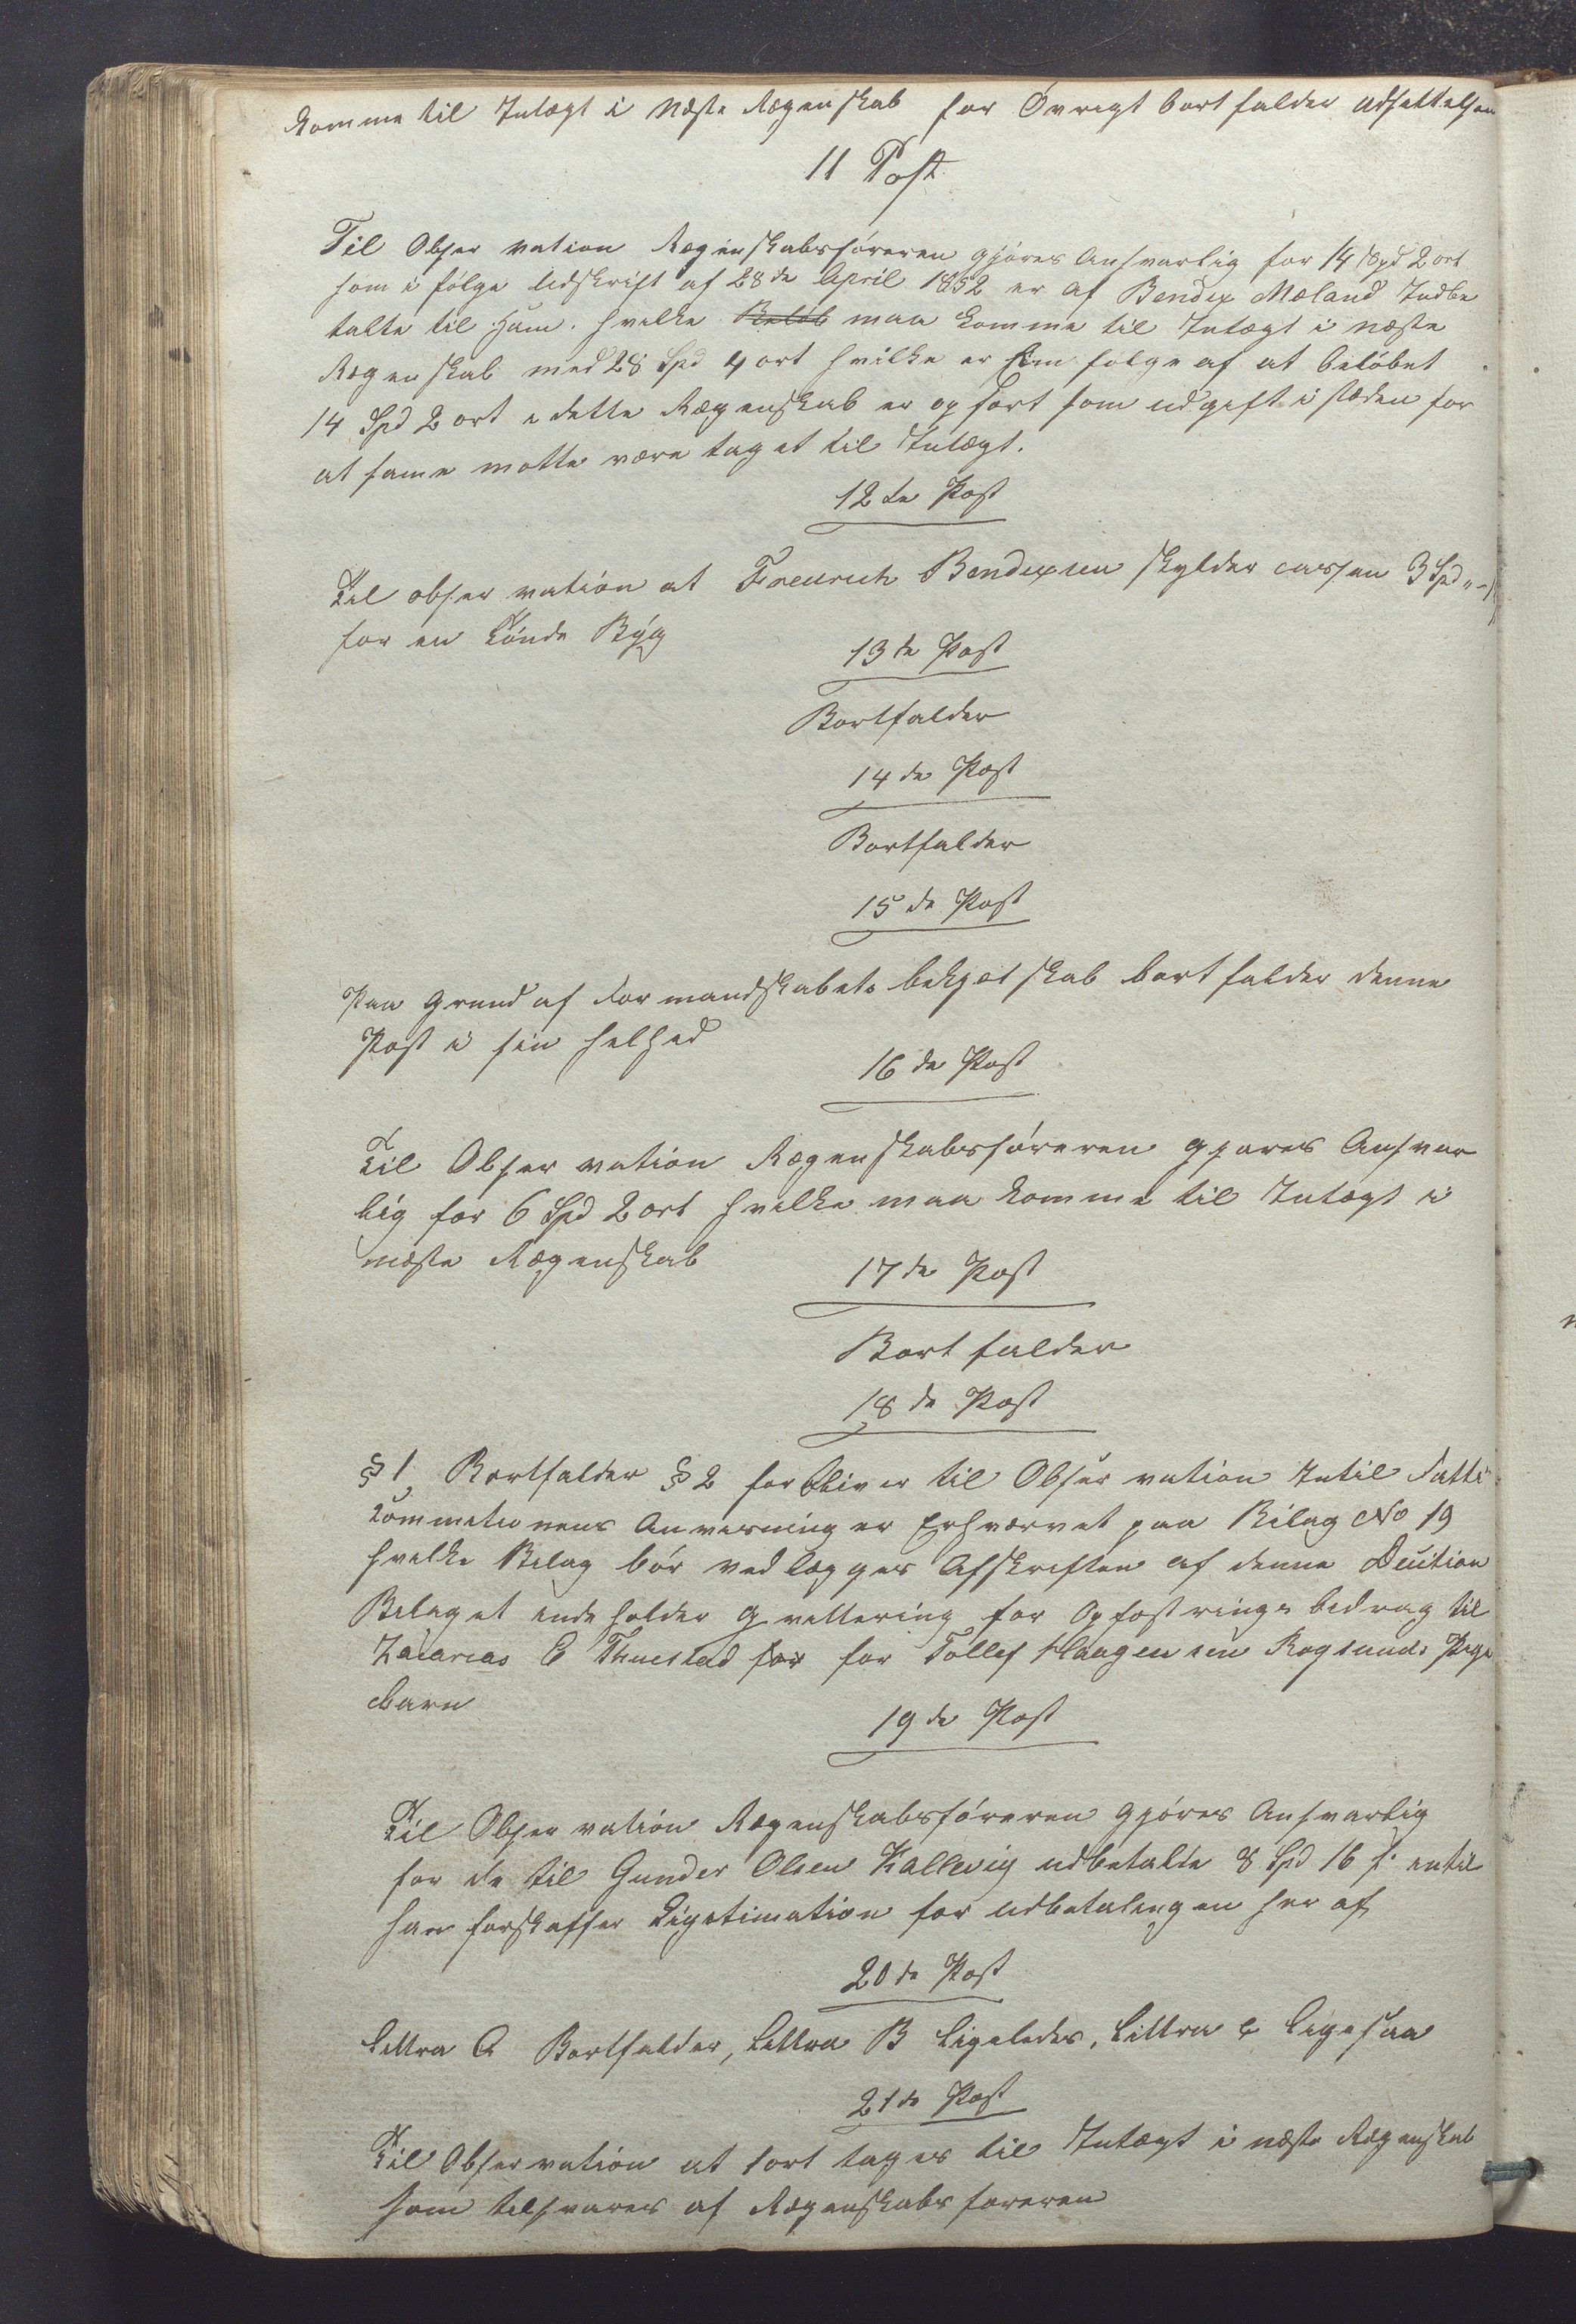 komme til Intægt i Næste Regenskab for Øvrigt bort falder Udsættelsen
11 Post
Til Obser vation Regenskabsføreren gjøres Ansvarlig for 14 Spd 2 ort
som i følge Udskrift af 28de April 1852 er af Bendix Mæland Indbe
talte til Ham. hvilke Beløb maa komme til Intægt i næste
Regenskab med 28 Spd 4 ort hvilke er En følge af at beløbet
14 Spd 2 ort i dette Regenskab er opført som udgift i stæden for
at same motte være taget til Intægt.
12te Post
Til obser vation at Fredrich Bendixsen skylder cassen 3 Spd
for en Tønde Byg
13de Post
Bortfalder
14de Post
Bortfalder
15de Post
Paa Grund af Formandskabets bekjætskab bort falder denne
Post i sin helhed
16de Post
Til Obser vation Regenskabsføreren gjøres Ansvar
lig for 6 Spd 2 ort hvilke maa komme til Intægt i
næste Regenskab
17de Post
Bort falder
18de Post
§ 1 Bortfalder § 2 forbliver til Obser vation Intil Fatti
kommitionens Anvisning er Erhværvet paa Bilag No 19
hvilke Bilag bør ved lægges Afskriften af denne Decition
Bilaget inde holder Qvittering for Opfostrings bidrag til
Zacarias E Thuestad for for Tollef Haagensen Rogsunds Pige
Barn
19de Post
Til Obser vation Regenskabsføreren gjøres Ansvarlig
for de til Gunder Olsen Kallevig udbetalte 8 Spd 16 s. intil
han forskaffer Ligetimation for udbetalingen her af
20de Post
Littra A Bortfalder, Littra B ligeledes, Littra c ligesaa
21de Post
Til Observation at 1 ort tages til Intægt i næste Regenskab
som tilsvares af Regenskabs føreren